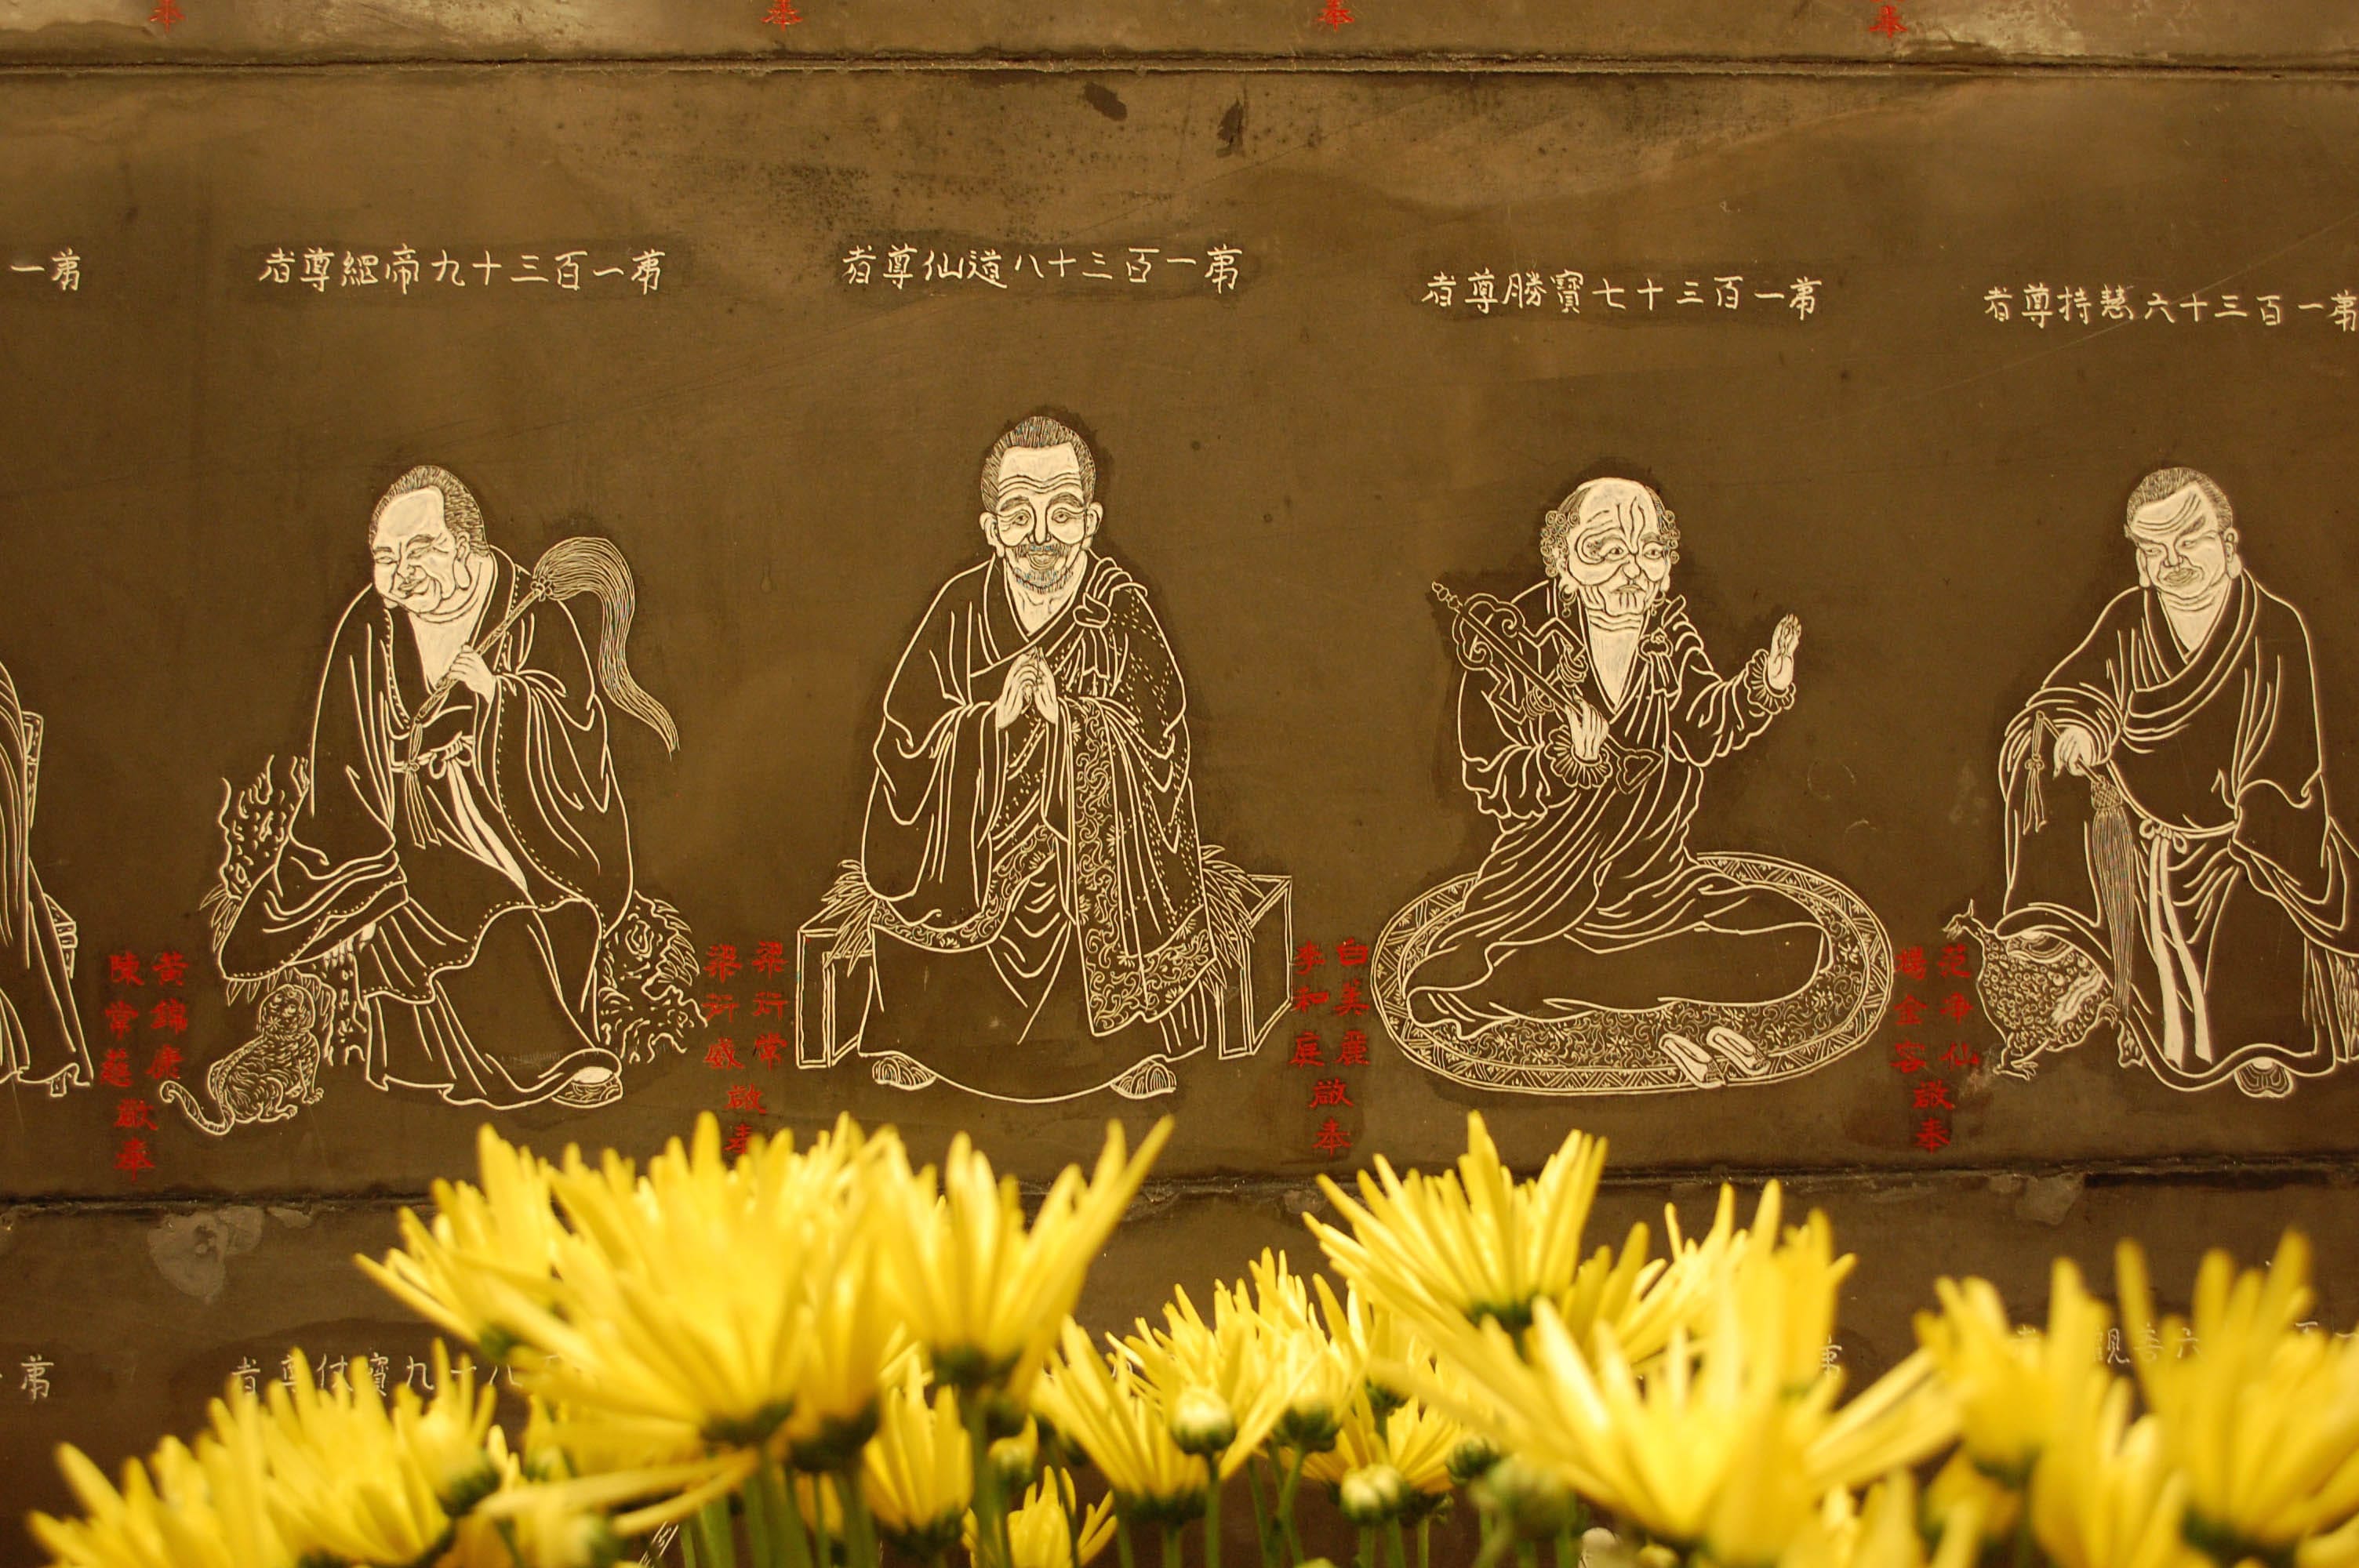 第一百三十六慧持尊者
第一百三十七寶勝尊者
第一百三十八道仙尊者
第一百三十九帝網尊者
第一
范净仙
楊金容
敬奉
白美麗
李和庭
敬奉
梁荇常
梁荇威
敬奉
黃錦庚
陳常
敬奉
奉
奉
奉
奉
六善觀
第
八十九寶仗尊者
第